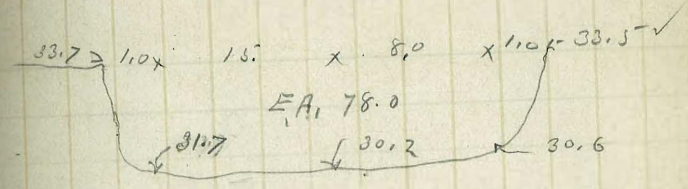 33.7 > 1.0 x 15. x 8.0 x 1.0 ← 33.5 ✓
E.A. 78.0
30.2 30.6